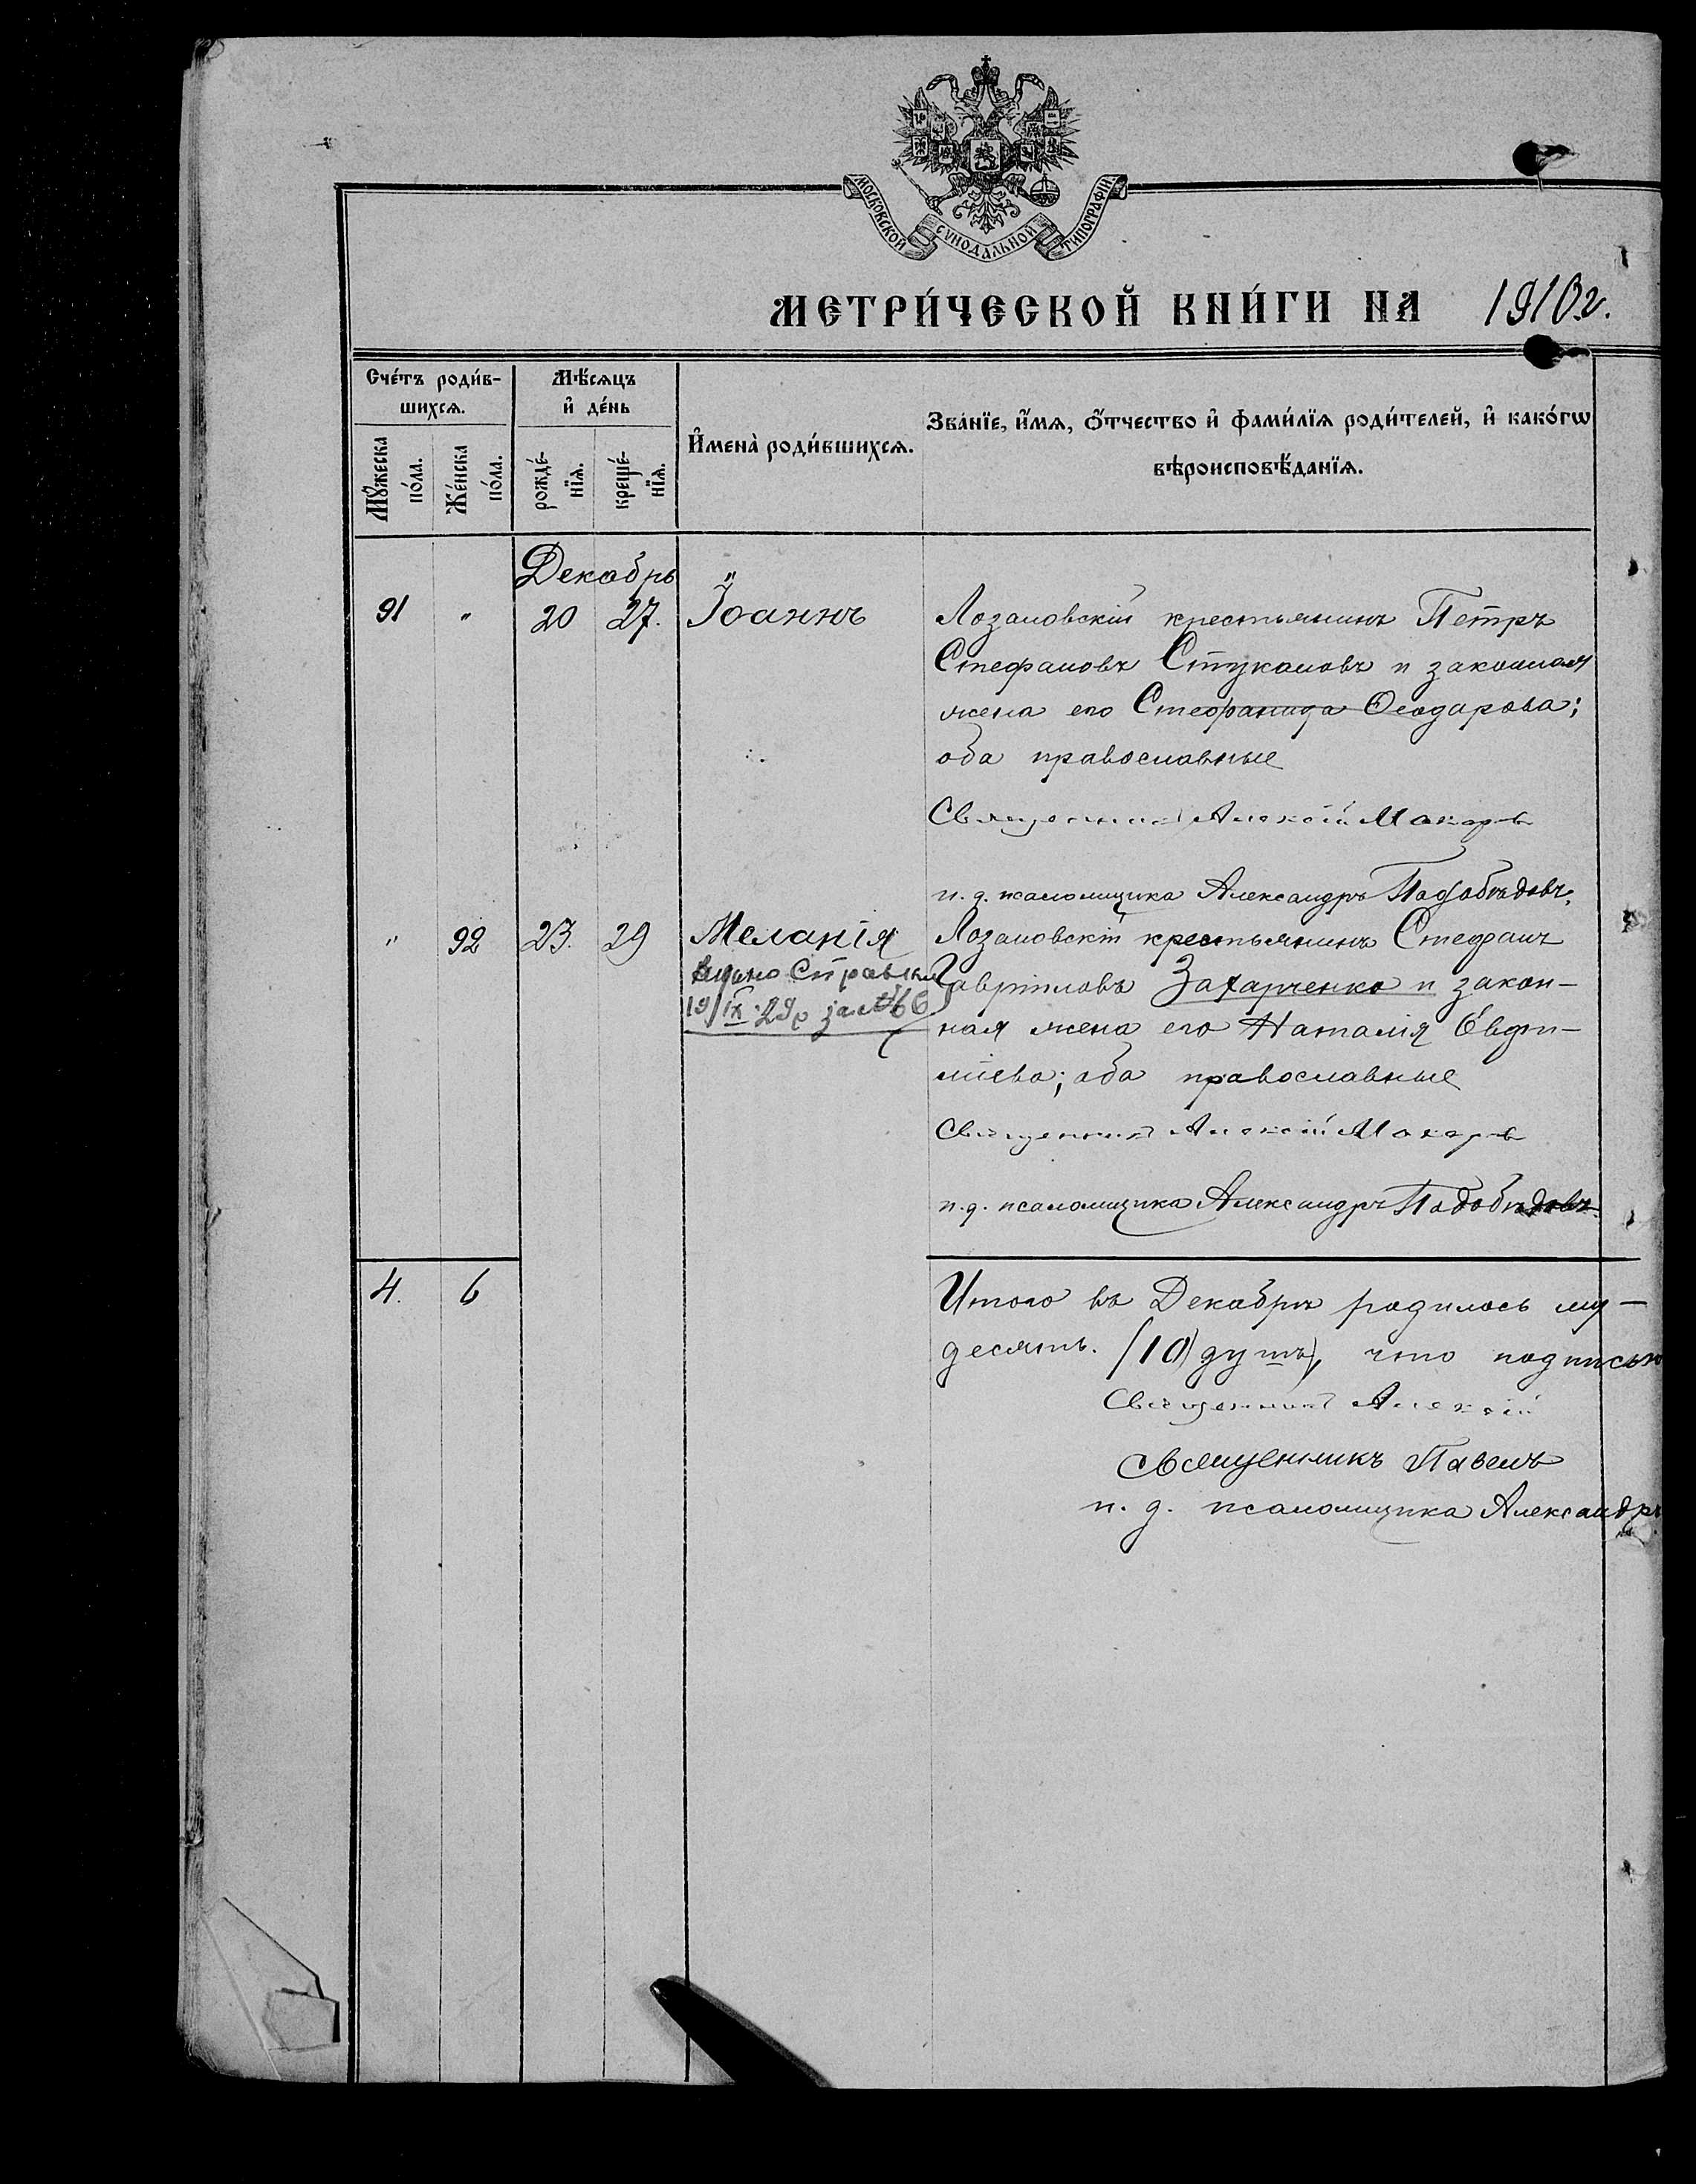 МОСКОВСКОЙ СѴНОДАЛЬНОЙ ТИПОГРАФІИ
МЕТРИ́ЧЕСКОЙ КНИ́ГИ НА 1910 г.
Сче́тъ роди́в-
шихсѧ.
Мꙋ́жеска
по́ла.
Же́нска
по́ла.
Мѣ́сѧцъ
и҆ де́нь
рожде́-
нїѧ.
креще́-
нїѧ.
И҆мена̀ роди́вшихсѧ.
Зва́нїе, и҆́мѧ, ѻ҆́тчество и҆ фами́лїѧ роди́телей, и҆ како́гѡ
вѣроисповѣ́данїѧ.
Декабрь
91 " 20 27. Іоаннъ
Лозановскій крестьянинъ Петръ
Стефановъ Стукановъ и законная
жена его Стефанида Ѳеодорова;
оба православные
Священникъ Алексій Макаровъ
и. д. псаломщика Александръ Подобѣдовъ.
" 92 23. 29 Меланія
Видано Справку
19/IX 29р за № 66
Лозановскій крестьянинъ Стефанъ
Гавріиловъ Захарченко и закон-
ная жена его Наталія Евфи-
міева; оба православные
Священникъ Алексій Макаровъ
и. д. псаломщика Александръ Подобѣдовъ.
4. 6
Итого въ Декабрѣ родилось му-
десять (10) душъ, что подписью
Священникъ Алексій
Священникъ Павелъ
и. д. псаломщика Александръ